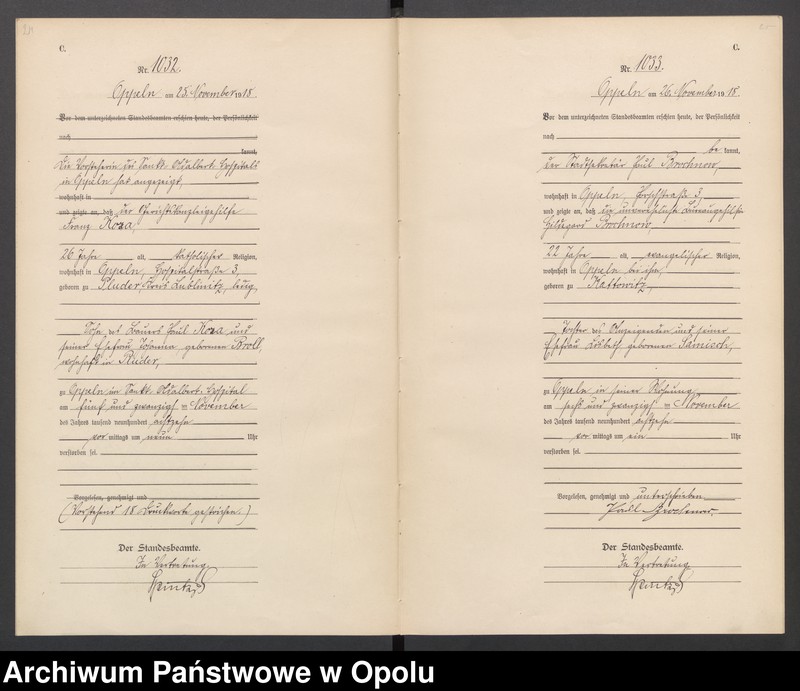 C.
Nr. 1032.
Oppeln am 25. November 1918.
Vor dem unterzeichneten Standesbeamten erschien heute, der Persönlichkeit
nach
kannt,
Die Vorsteherin des Sankt Adalbert-Hospitals
in Oppeln hat angezeigt,
wohnhaft in
und zeigte an, daß der Gerichtskanzleigehilfe
Franz Koza,
26 Jahre alt, katholischer Religion,
wohnhaft in Oppeln, Hospitalstraße 3,
geboren zu Pluder Kreis Lublinitz, ledig,
Sohn des Bauers Paul Koza und
seiner Ehefrau Johanna geborenen Broll,
wohnhaft in Pluder,
zu Oppeln im Sankt Adalbert-Hospital
am fünf und zwanzigsten November
des Jahres tausend neunhundert achtzehn
vor mittags um neun Uhr
verstorben sei.
Vorgelesen, genehmigt und
(Vorstehend 18 Druckworte gestrichen.)
Der Standesbeamte.
In Vertretung
C.
Nr. 1033.
Oppeln am 26. November 1918.
Vor dem unterzeichneten Standesbeamten erschien heute, der Persönlichkeit
nach
be kannt,
der Stadtsekretär Paul Brochnow,
wohnhaft in Oppeln, 3,
und zeigte an, daß die unverehelichte Büroaugehilfin
Hildegard Brochnow,
22 Jahre alt, evangelischer Religion,
wohnhaft in Oppeln bei ihm,
geboren zu Kattowitz,
Tochter des Anzeigenden und seiner
Ehefrau Lisbeth geborenen
zu Oppeln in seiner Wohnung
am sechs und zwanzigsten November
des Jahres tausend neunhundert achtzehn
vor mittags um ein Uhr
verstorben sei.
Vorgelesen, genehmigt und unterschrieben
Paul Brochnow.
Der Standesbeamte.
In Vertretung
Archiwum Państwowe w Opolu